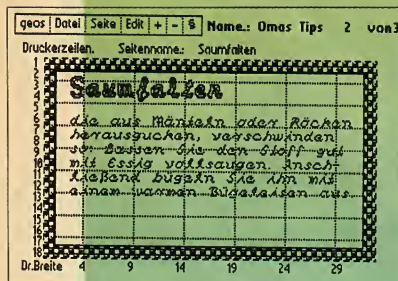 geos Datei Seite Edit + - § Name.: Omas Tips 2 von3
Druckerzeilen. Seitenname.: Saumfalten
1
2
3
4
5
6
7
8
9
10
11
12
13
14
15
16
17
18
Saumfalten
die aus Mänteln oder Röcken
herausgucken, verschwinden
so: Lassen Sie den Stoff gut
mit Essig vollsaugen. Ansch-
ließend bügeln Sie ihn mit
einem warmen Bügeleisen aus.
Dr.Breite 4 9 14 19 24 29